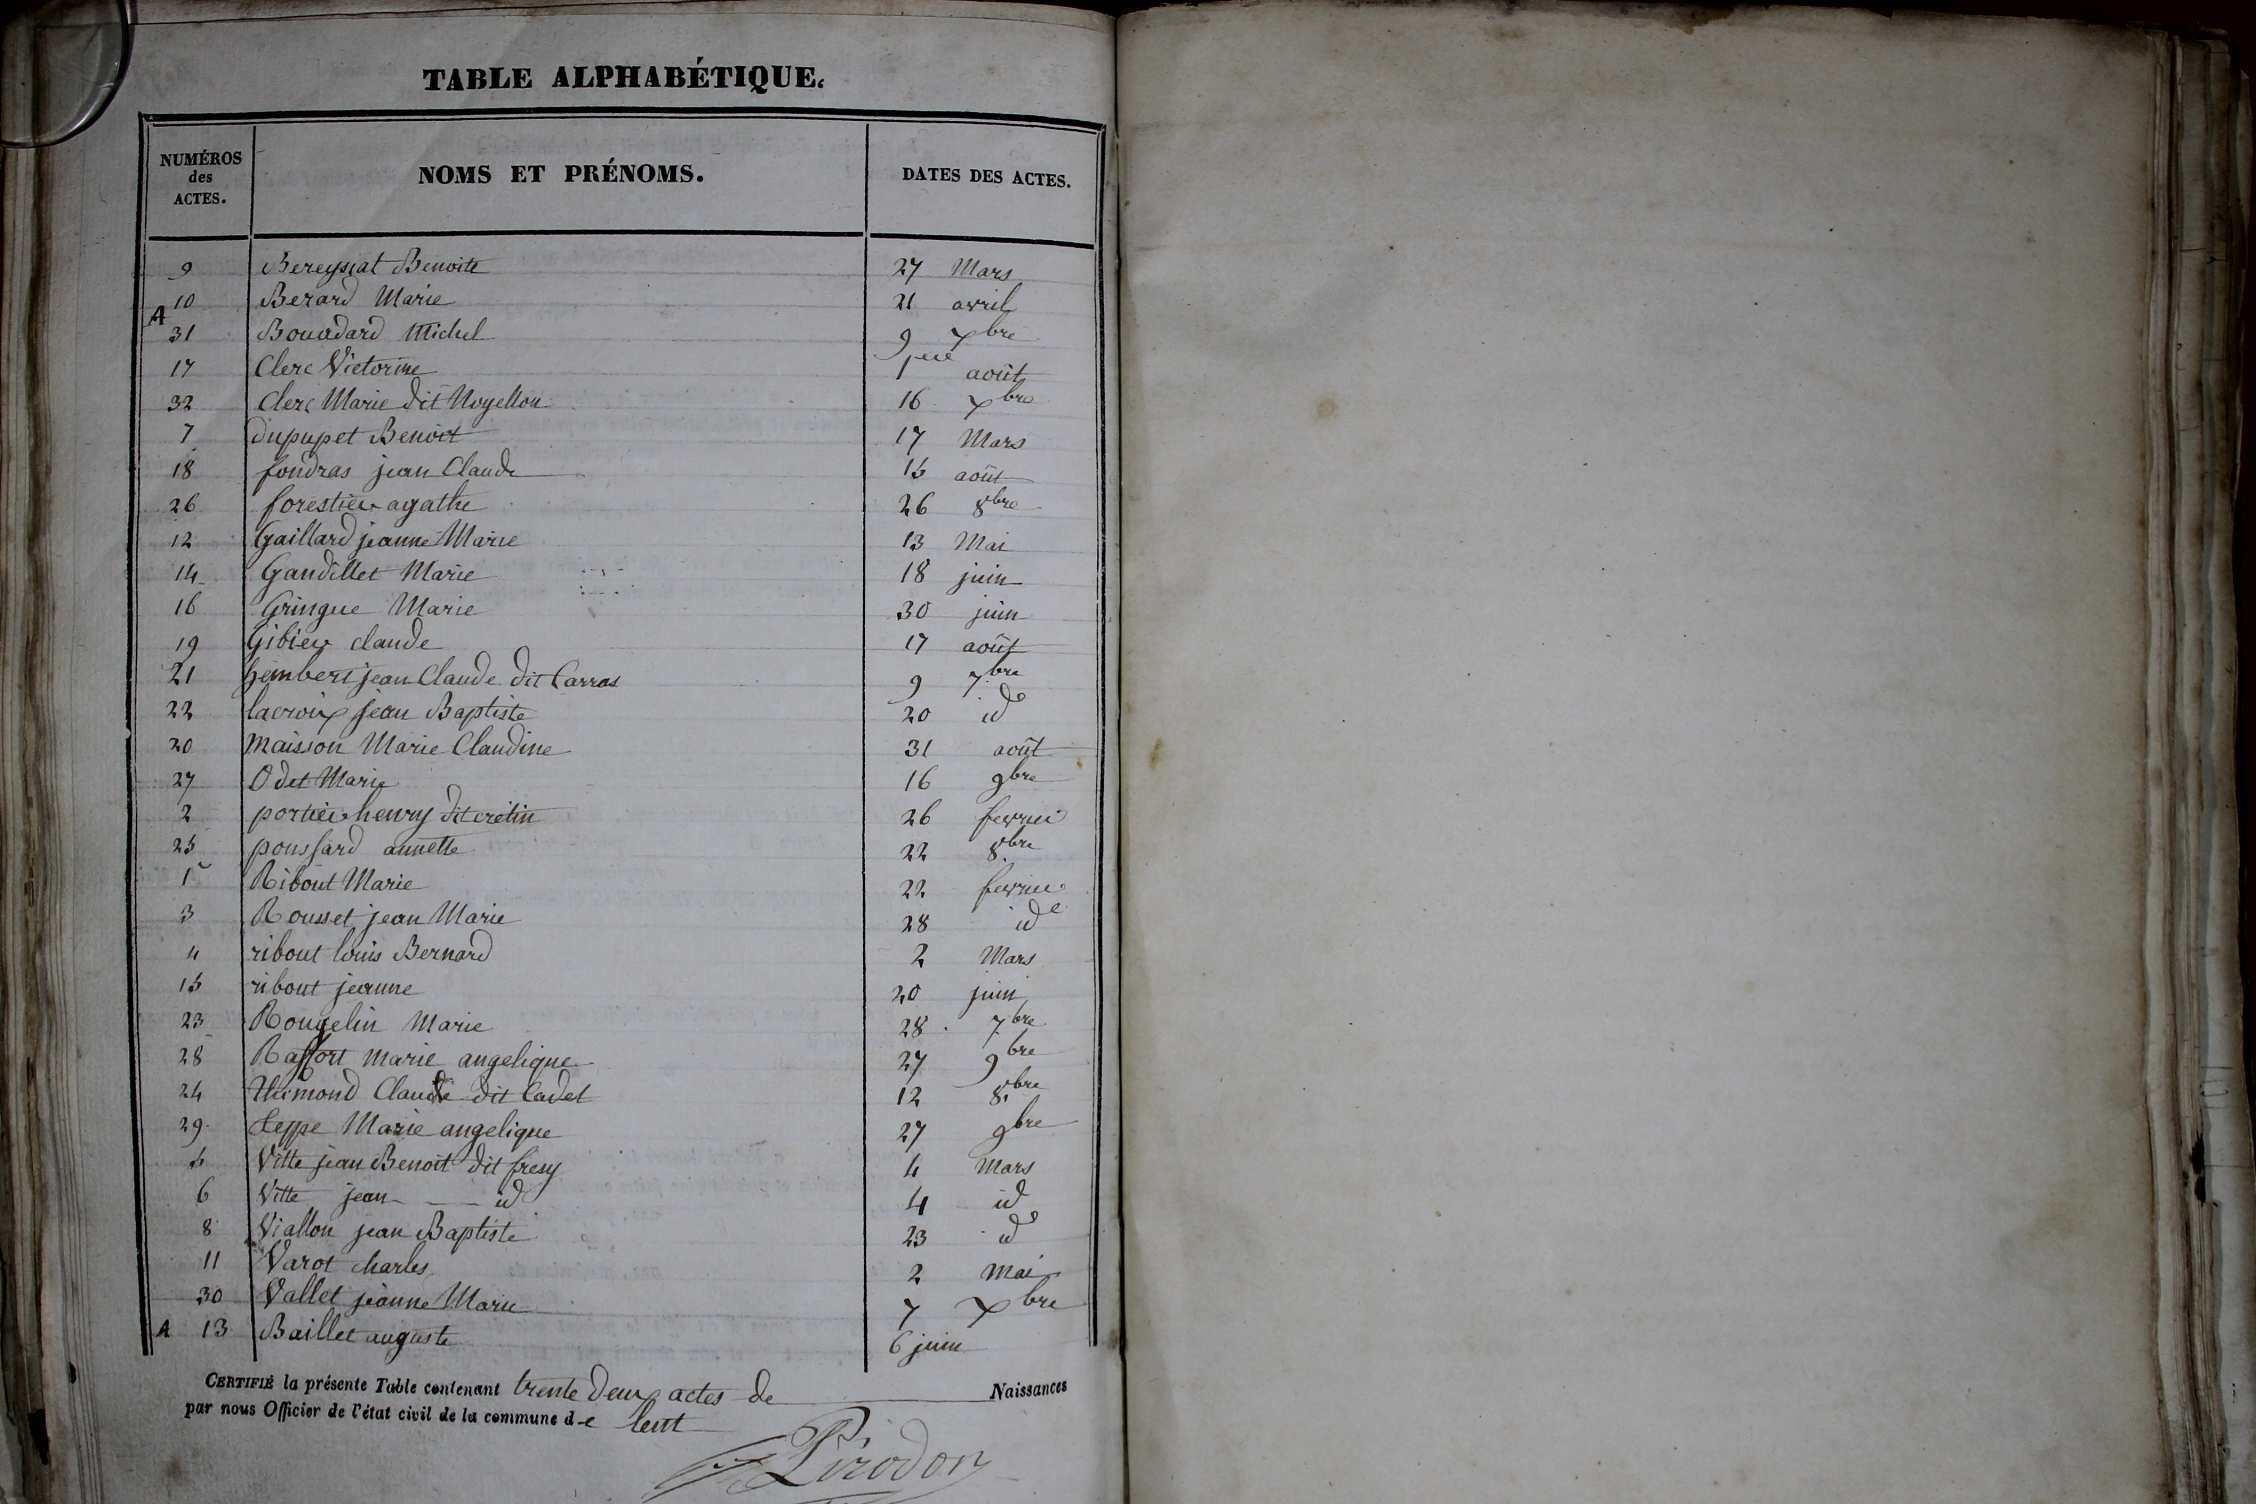 TABLE ALPHABÉTIQUE.
NUMÉROS des ACTES. NOMS ET PRÉNOMS. DATES DES ACTES.
9 Bereyziat Benoite 27 Mars
10 Berard Marie 21 avril
A
31 Bouvdard Michel 9 Xbre
17 Clerc Victorine 1er août
32 Clerc Marie dit Noyellon 16 Xbre
7 dupupet Benoit 17 Mars
18 fondras jean Claude 15 août
26 forestier agathe 26 8bre
12 Gaillard jeanne Marie 13 Mai
14 Gandillet Marie 18 juin
16 Gringue Marie 30 juin
19 Gibier claude 17 août
21 himbert jean Claude dit Carras 9 7bre
22 lacroix jean Baptiste 20 id
20 Maisson Marie Claudine 31 août
27 Odet Marie 16 9bre
2 portier henry dit cretin 26 fevrier
25 poussard annette 22 8bre
1 Ribout Marie 22 fevrier
3 Rousset jean Marie 28 id
4 ribout louis Bernard 2 Mars
15 ribout jeanne 20 juin
23 Rougelin Marie 28 7bre
28 Raffort marie angelique 27 9bre
24 Thimond Claude dit Cadet 12 8bre
29 teppe Marie angelique 27 9bre
5 Vitte jean Benoit dit fresy 4 Mars
6 Vitte jean id 4 id
8 Viallon jean Baptiste 23 id
11 Varot charles 2 mai
30 Vallet jeanne Marie 7 Xbre
A 13 Baillet auguste 6 juin
CERTIFIÉ la présente Table contenant trente deux actes de Naissances
par nous Officier de l'état civil de la commune de lent
Pirodon